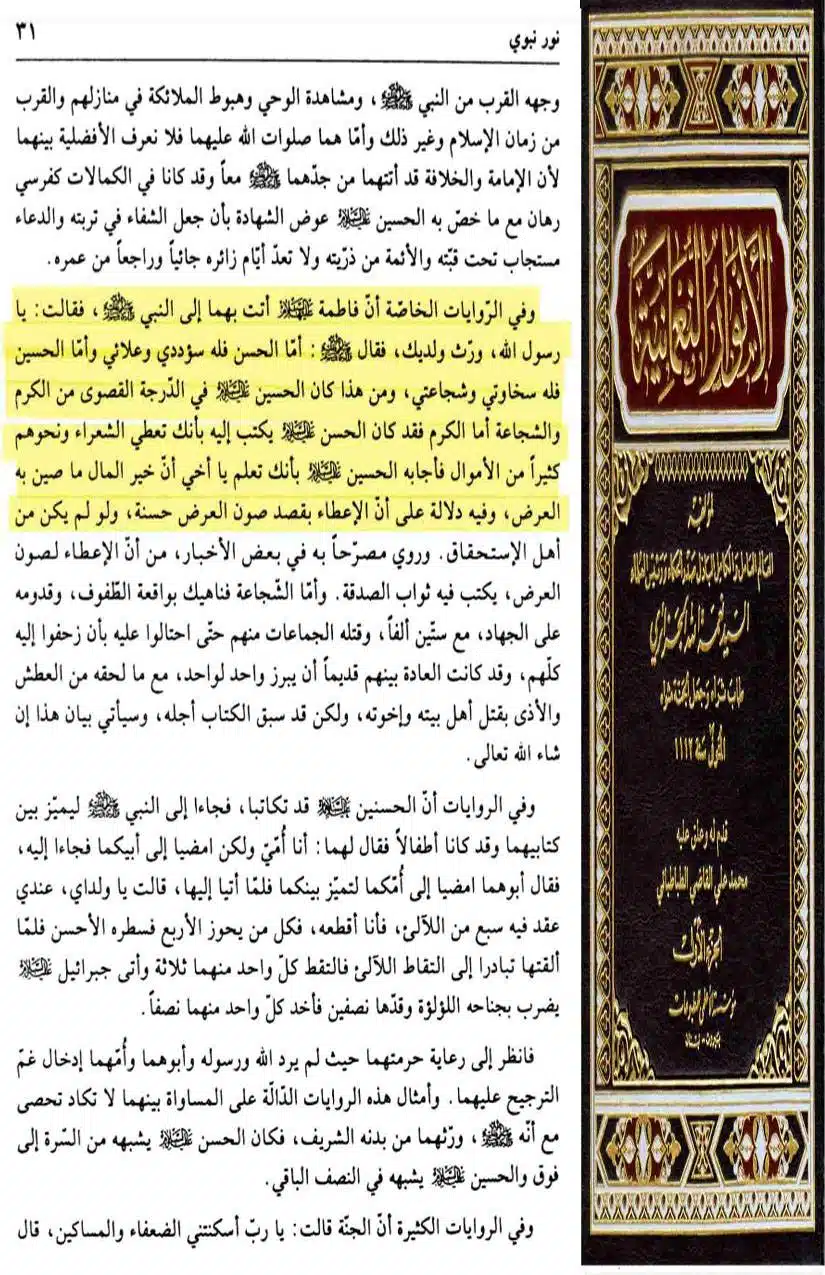 نور نبوي
٣١
وجهه القرب من النبي ﷺ، ومشاهدة الوحي وهبوط الملائكة في منازلهم والقرب
من زمان الإسلام وغير ذلك وأمّا هما صلوات الله عليهما فلا نعرف الأفضلية بينهما
لأن الإمامة والخلافة قد أتتهما من جدّهما ﷺ معاً وقد كانا في الكمالات كفرسي
رهان مع ما خصّ به الحسين عليه السلام عوض الشهادة بأن جعل الشفاء في تربته والدعاء
مستجاب تحت قبّته والأئمة من ذرّيته ولا تعدّ أيّام زائره جائياً وراجعاً من عمره.
وفي الرّوايات الخاصّة أنّ فاطمة عليها السلام أتت بهما إلى النبي ﷺ، فقالت: يا
رسول الله، ورّث ولديك، فقال ﷺ: أمّا الحسن فله سؤددي وعلائي وأمّا الحسين
فله سخاوتي وشجاعتي، ومن هذا كان الحسين عليه السلام في الدّرجة القصوى من الكرم
والشجاعة أما الكرم فقد كان الحسن عليه السلام يكتب إليه بأنك تعطي الشعراء ونحوهم
كثيراً من الأموال فأجابه الحسين عليه السلام بأنك تعلم يا أخي أنّ خير المال ما صين به
العرض، وفيه دلالة على أنّ الإعطاء بقصد صون العرض حسنة، ولو لم يكن من
أهل الإستحقاق. وروي مصرّحاً به في بعض الأخبار، من أنّ الإعطاء لصون
العرض، يكتب فيه ثواب الصدقة. وأمّا الشّجاعة فناهيك بواقعة الطّفوف، وقدومه
على الجهاد، مع ستّين ألفاً، وقتله الجماعات منهم حتّى احتالوا عليه بأن زحفوا إليه
كلّهم، وقد كانت العادة بينهم قديماً أن يبرز واحد لواحد، مع ما لحقه من العطش
والأذى بقتل أهل بيته وإخوته، ولكن قد سبق الكتاب أجله، وسيأتي بيان هذا إن
شاء الله تعالى.
وفي الروايات أنّ الحسنين عليهما السلام قد تكاتبا، فجاءا إلى النبي ﷺ ليميّز بين
كتابيهما وقد كانا أطفالاً فقال لهما: أنا أُمّيّ ولكن امضيا إلى أبيكما فجاءا إليه،
فقال أبوهما امضيا إلى أُمّكما لتميّز بينكما فلمّا أتيا إليها، قالت يا ولداي، عندي
عقد فيه سبع من اللآلئ، فأنا أقطعه، فكل من يحوز الأربع فسطره الأحسن فلمّا
ألقتها تبادرا إلى التقاط اللآلئ فالتقط كلّ واحد منهما ثلاثة وأتى جبرائيل عليه السلام
يضرب بجناحه اللؤلؤة وقدّها نصفين فأخد كلّ واحد منهما نصفاً.
فانظر إلى رعاية حرمتهما حيث لم يرد الله ورسوله وأبوهما وأُمّهما إدخال غمّ
الترجيح عليهما. وأمثال هذه الروايات الدّالّة على المساواة بينهما لا تكاد تحصى
مع أنّه ﷺ، ورّثهما من بدنه الشريف، فكان الحسن عليه السلام يشبهه من السّرة إلى
فوق والحسين عليه السلام يشبهه في النصف الباقي.
وفي الروايات الكثيرة أنّ الجنّة قالت: يا ربّ أسكنتني الضعفاء والمساكين، قال
الأنوار النعمانية
لمؤلفه
السيد نعمة الله الجزائري
المتوفى سنة ١١١٢
قدم له وعلق عليه
محمد علي القاضي الطباطبائي
الجزء الأول
مؤسسة الأعلمي للمطبوعات
بيروت - لبنان